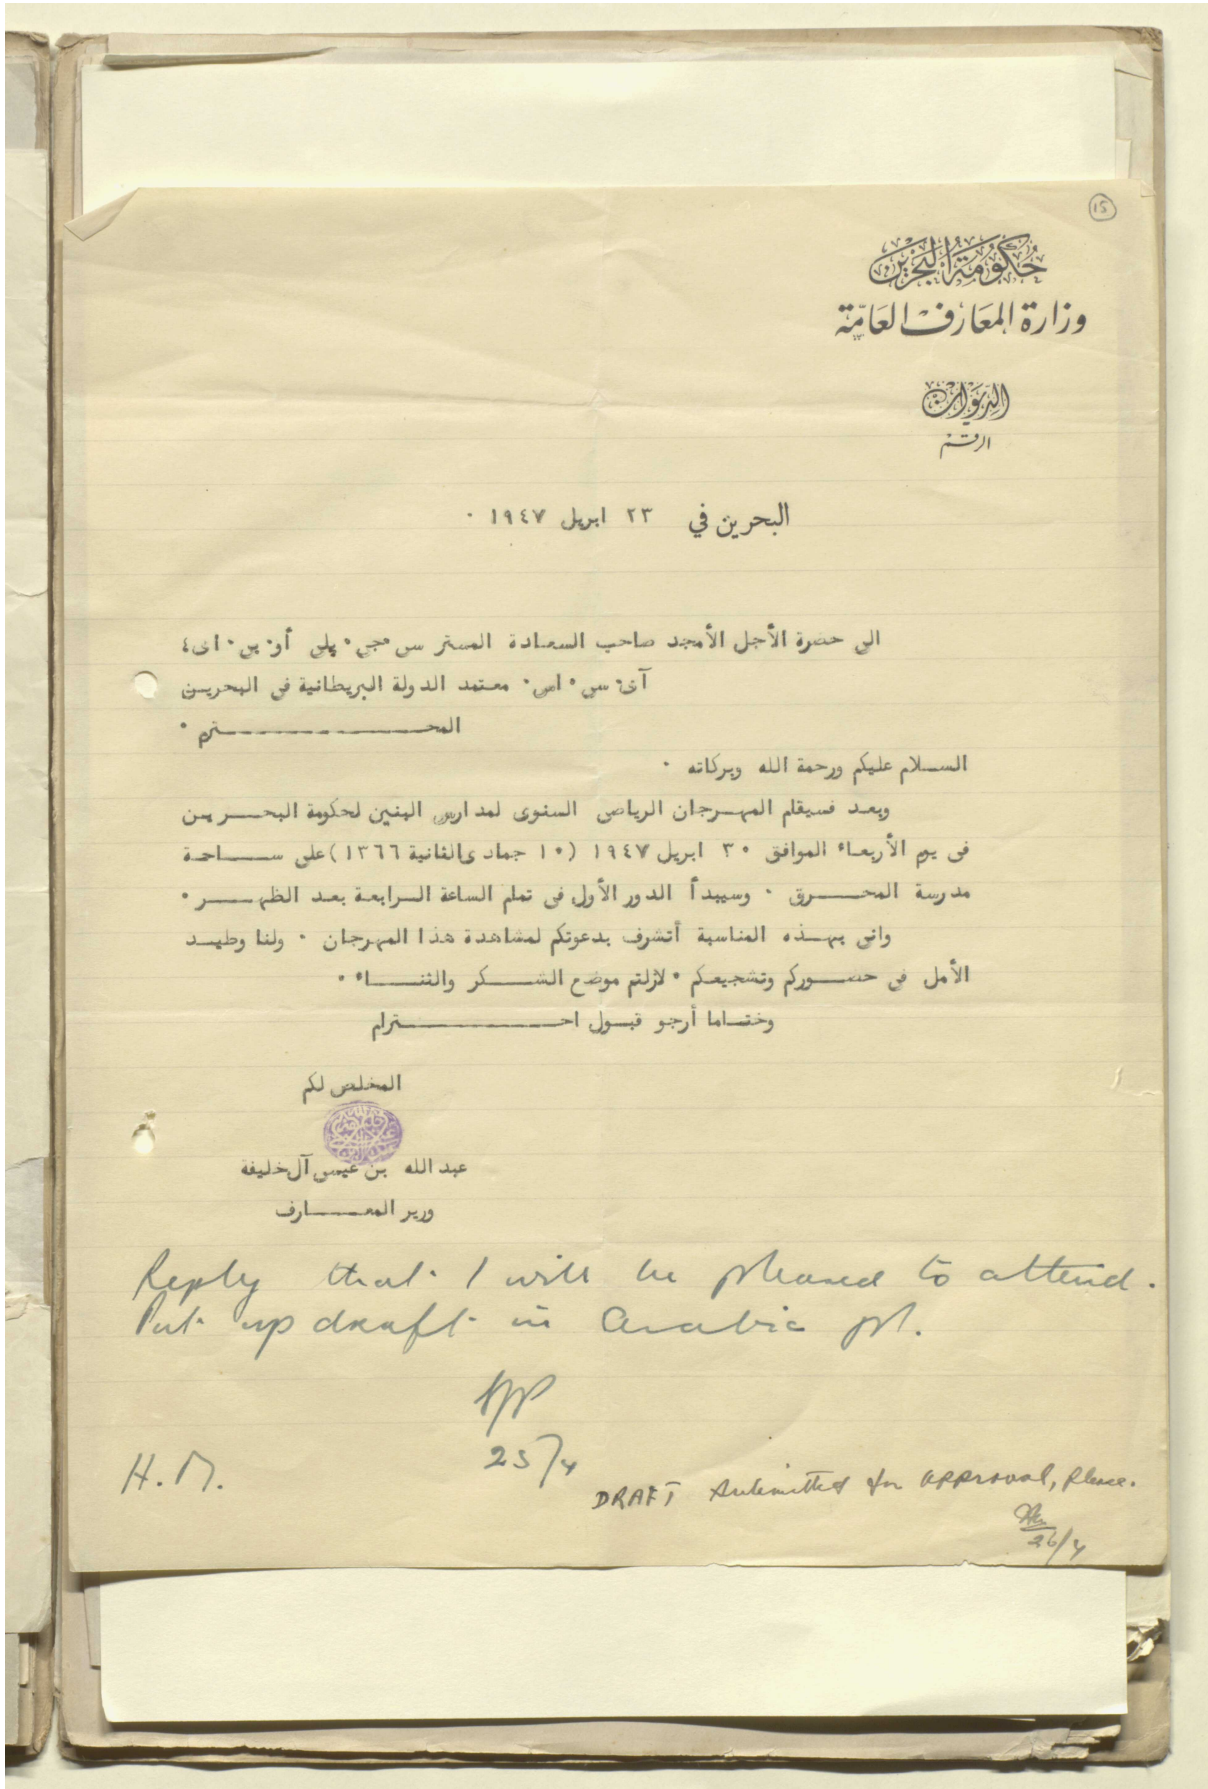 15
حكومة البحرين
وزارة المعارف العامة
الديوان
الرقم
البحرين في ٢٣ ابريل ١٩٤٧ ٠
الى حضرة الأجل الأمجد صاحب السعادة المستر سي ٠ جي ٠ پلي أو ٠ بي ٠ اى ٤
آى ٠ سي ٠ اس ٠ معتمد الدولة البريطانية فى البحرين
المحترم ٠
السلام عليكم ورحمة الله وبركاته ٠
وبعد فسيقام المهرجان الرياضى السنوى لمدارس البنين لحكومة البحرين
فى يوم الأربعاء الموافق ٣٠ ابريل ١٩٤٧ (١٠ جمادى الثانية ١٣٦٦) على ساحة
مدرسة المحرق ٠ وسيبدأ الدور الأول فى تمام الساعة الرابعة بعد الظهر ٠
وانى بهذه المناسبة أتشرف بدعوتكم لمشاهدة هذا المهرجان ٠ ولنا وطيد
الأمل فى حضوركم وتشجيعكم ٠ لازلتم موضع الشكر والثناء ٠
وختاما أرجو قبول احترام
المخلص لكم
عبد الله بن عيسى آل خليفة
وزير المعارف
Reply that I will be pleased to attend.
Put up draft in Arabic pl.
25/4
H.M.
DRAFT submitted for approval, please.
26/4